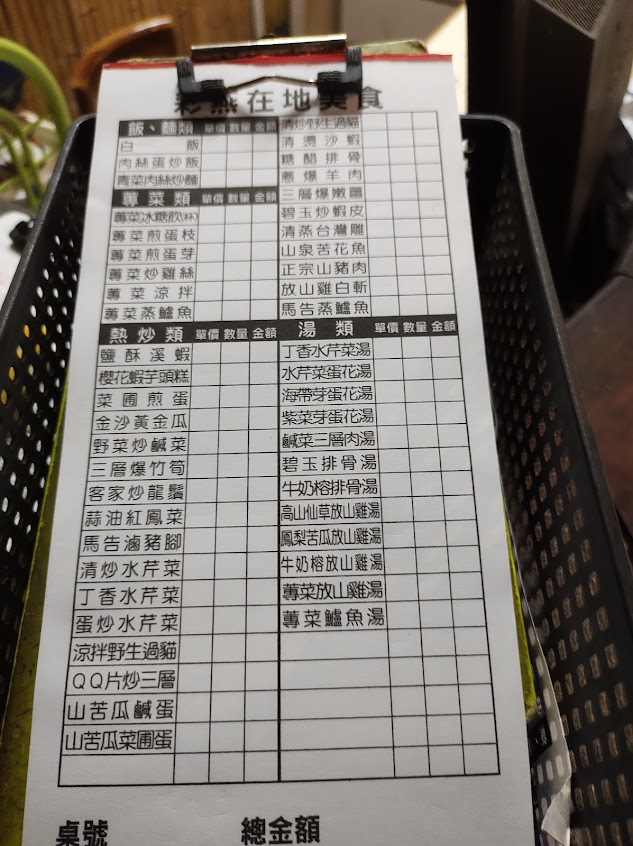 彩燕在地美食
飯、麵類 單價 數量 金額
白飯
肉絲蛋炒飯
青菜肉絲炒麵
蓴菜類 單價 數量 金額
蓴菜冰糖飲(杯)
蓴菜煎蛋枝
蓴菜煎蛋芽
蓴菜炒雞絲
蓴菜涼拌
蓴菜蒸鱸魚
熱炒類 單價 數量 金額
鹽酥溪蝦
櫻花蝦芋頭糕
菜圃煎蛋
金沙黃金瓜
野菜炒鹹菜
三層爆竹筍
客家炒龍鬚
蒜油紅鳳菜
馬告滷豬腳
清炒水芹菜
丁香水芹菜
蛋炒水芹菜
涼拌野生過貓
QQ片炒三層
山苦瓜鹹蛋
山苦瓜菜圃蛋
清炒野生過貓
清燙沙蝦
糖醋排骨
蔥爆羊肉
三層爆嫩薑
碧玉炒蝦皮
清蒸台灣鵰
山泉苦花魚
正宗山豬肉
放山雞白斬
馬告蒸鱸魚
湯類 單價 數量 金額
丁香水芹菜湯
水芹菜蛋花湯
海帶芽蛋花湯
紫菜芽蛋花湯
鹹菜三層肉湯
碧玉排骨湯
牛奶榕排骨湯
高山仙草放山雞湯
鳳梨苦瓜放山雞湯
牛奶榕放山雞湯
蓴菜放山雞湯
蓴菜鱸魚湯
桌號 總金額